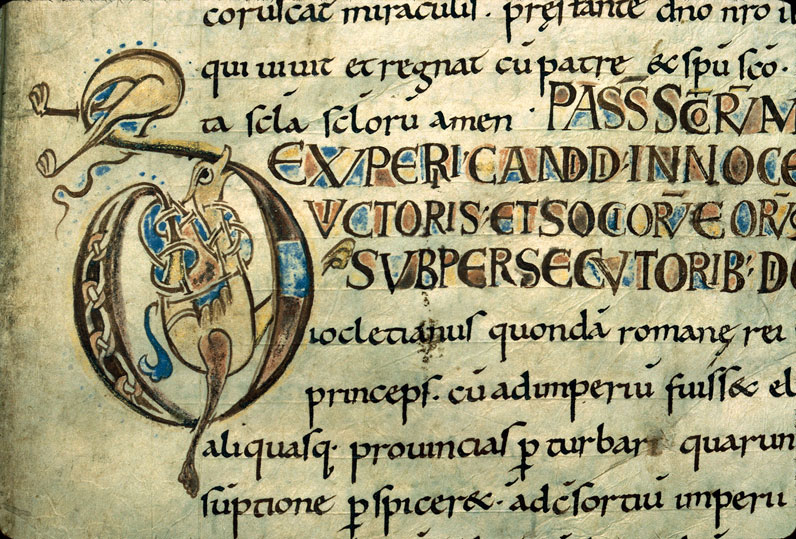 coruscat miraculis. prestante dno nro
qui uiuit et regnat cū patre & spū sco.
ta scła scłorū amen. PASS SCORVM
EXPERI CANDID INNOCE
VICTORIS ET SOCIORV EORV
SVB PERSECVTORIB: D
Diocletianus quondā romanę rei
princeps. cū ad imperiū fuiss& el
aliquasq; prouincias p turbar quarun
sūptione p spicer&. ad c̄sortiū imperii